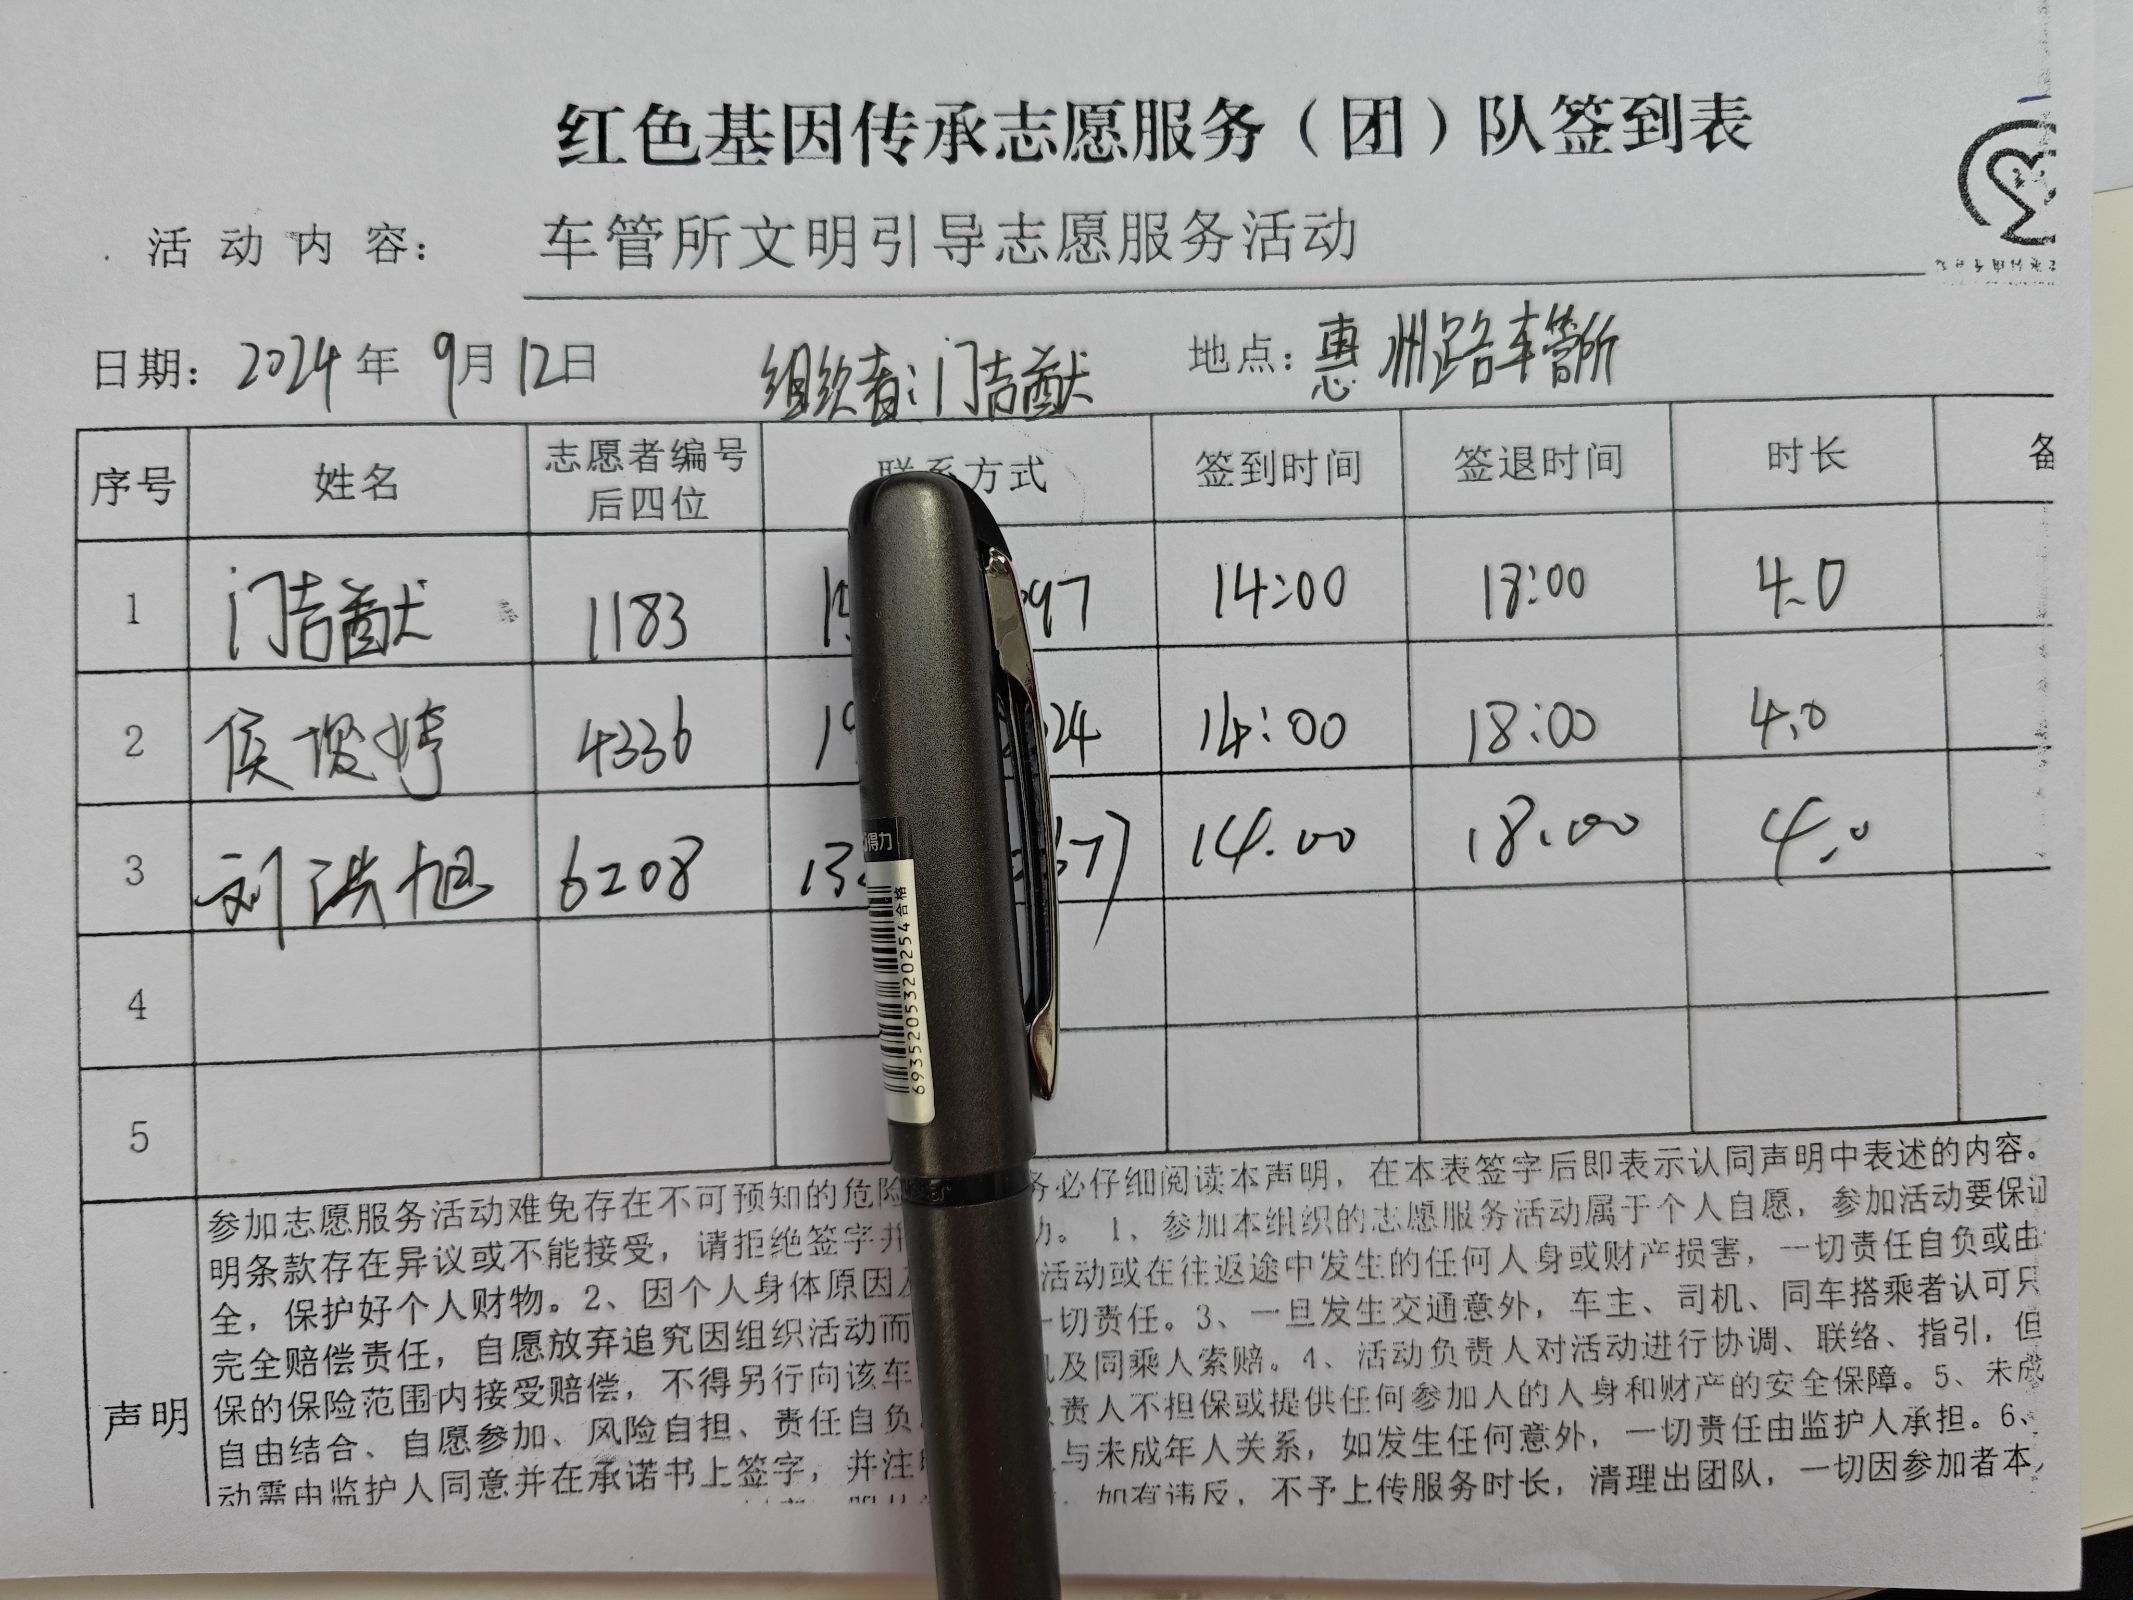 红色基因传承志愿服务（团）队签到表
活动内容： 车管所文明引导志愿服务活动
日期：2024年 9月12日 组织者：门吉猷 地点：惠州路车管所
序号 姓名 志愿者编号后四位 联系方式 签到时间 签退时间 时长
1 门吉猷 1183 97 14:00 18:00 4.0
2 侯 婷 4336 19 24 14:00 18:00 4.0
3 刘洪旭 6208 13 14.00 18.00 4.0
4
5
得力
6935205320254 合格
声明
参加志愿服务活动难免存在不可预知的危险 务必仔细阅读本声明，在本表签字后即表示认同声明中表述的内容。
明条款存在异议或不能接受，请拒绝签字并 1、参加本组织的志愿服务活动属于个人自愿，参加活动要保证
全，保护好个人财物。2、因个人身体原因 活动或在往返途中发生的任何人身或财产损害，一切责任自负或由
完全赔偿责任，自愿放弃追究因组织活动而 一切责任。3、一旦发生交通意外，车主、司机、同车搭乘者认可只
保的保险范围内接受赔偿，不得另行向该车 及同乘人索赔。4、活动负责人对活动进行协调、联络、指引，但
自由结合、自愿参加、风险自担、责任自负 责人不担保或提供任何参加人的人身和财产的安全保障。5、未成
动需由监护人同意并在承诺书上签字，并注 与未成年人关系，如发生任何意外，一切责任由监护人承担。6、
如有违反，不予上传服务时长，清理出团队，一切因参加者本